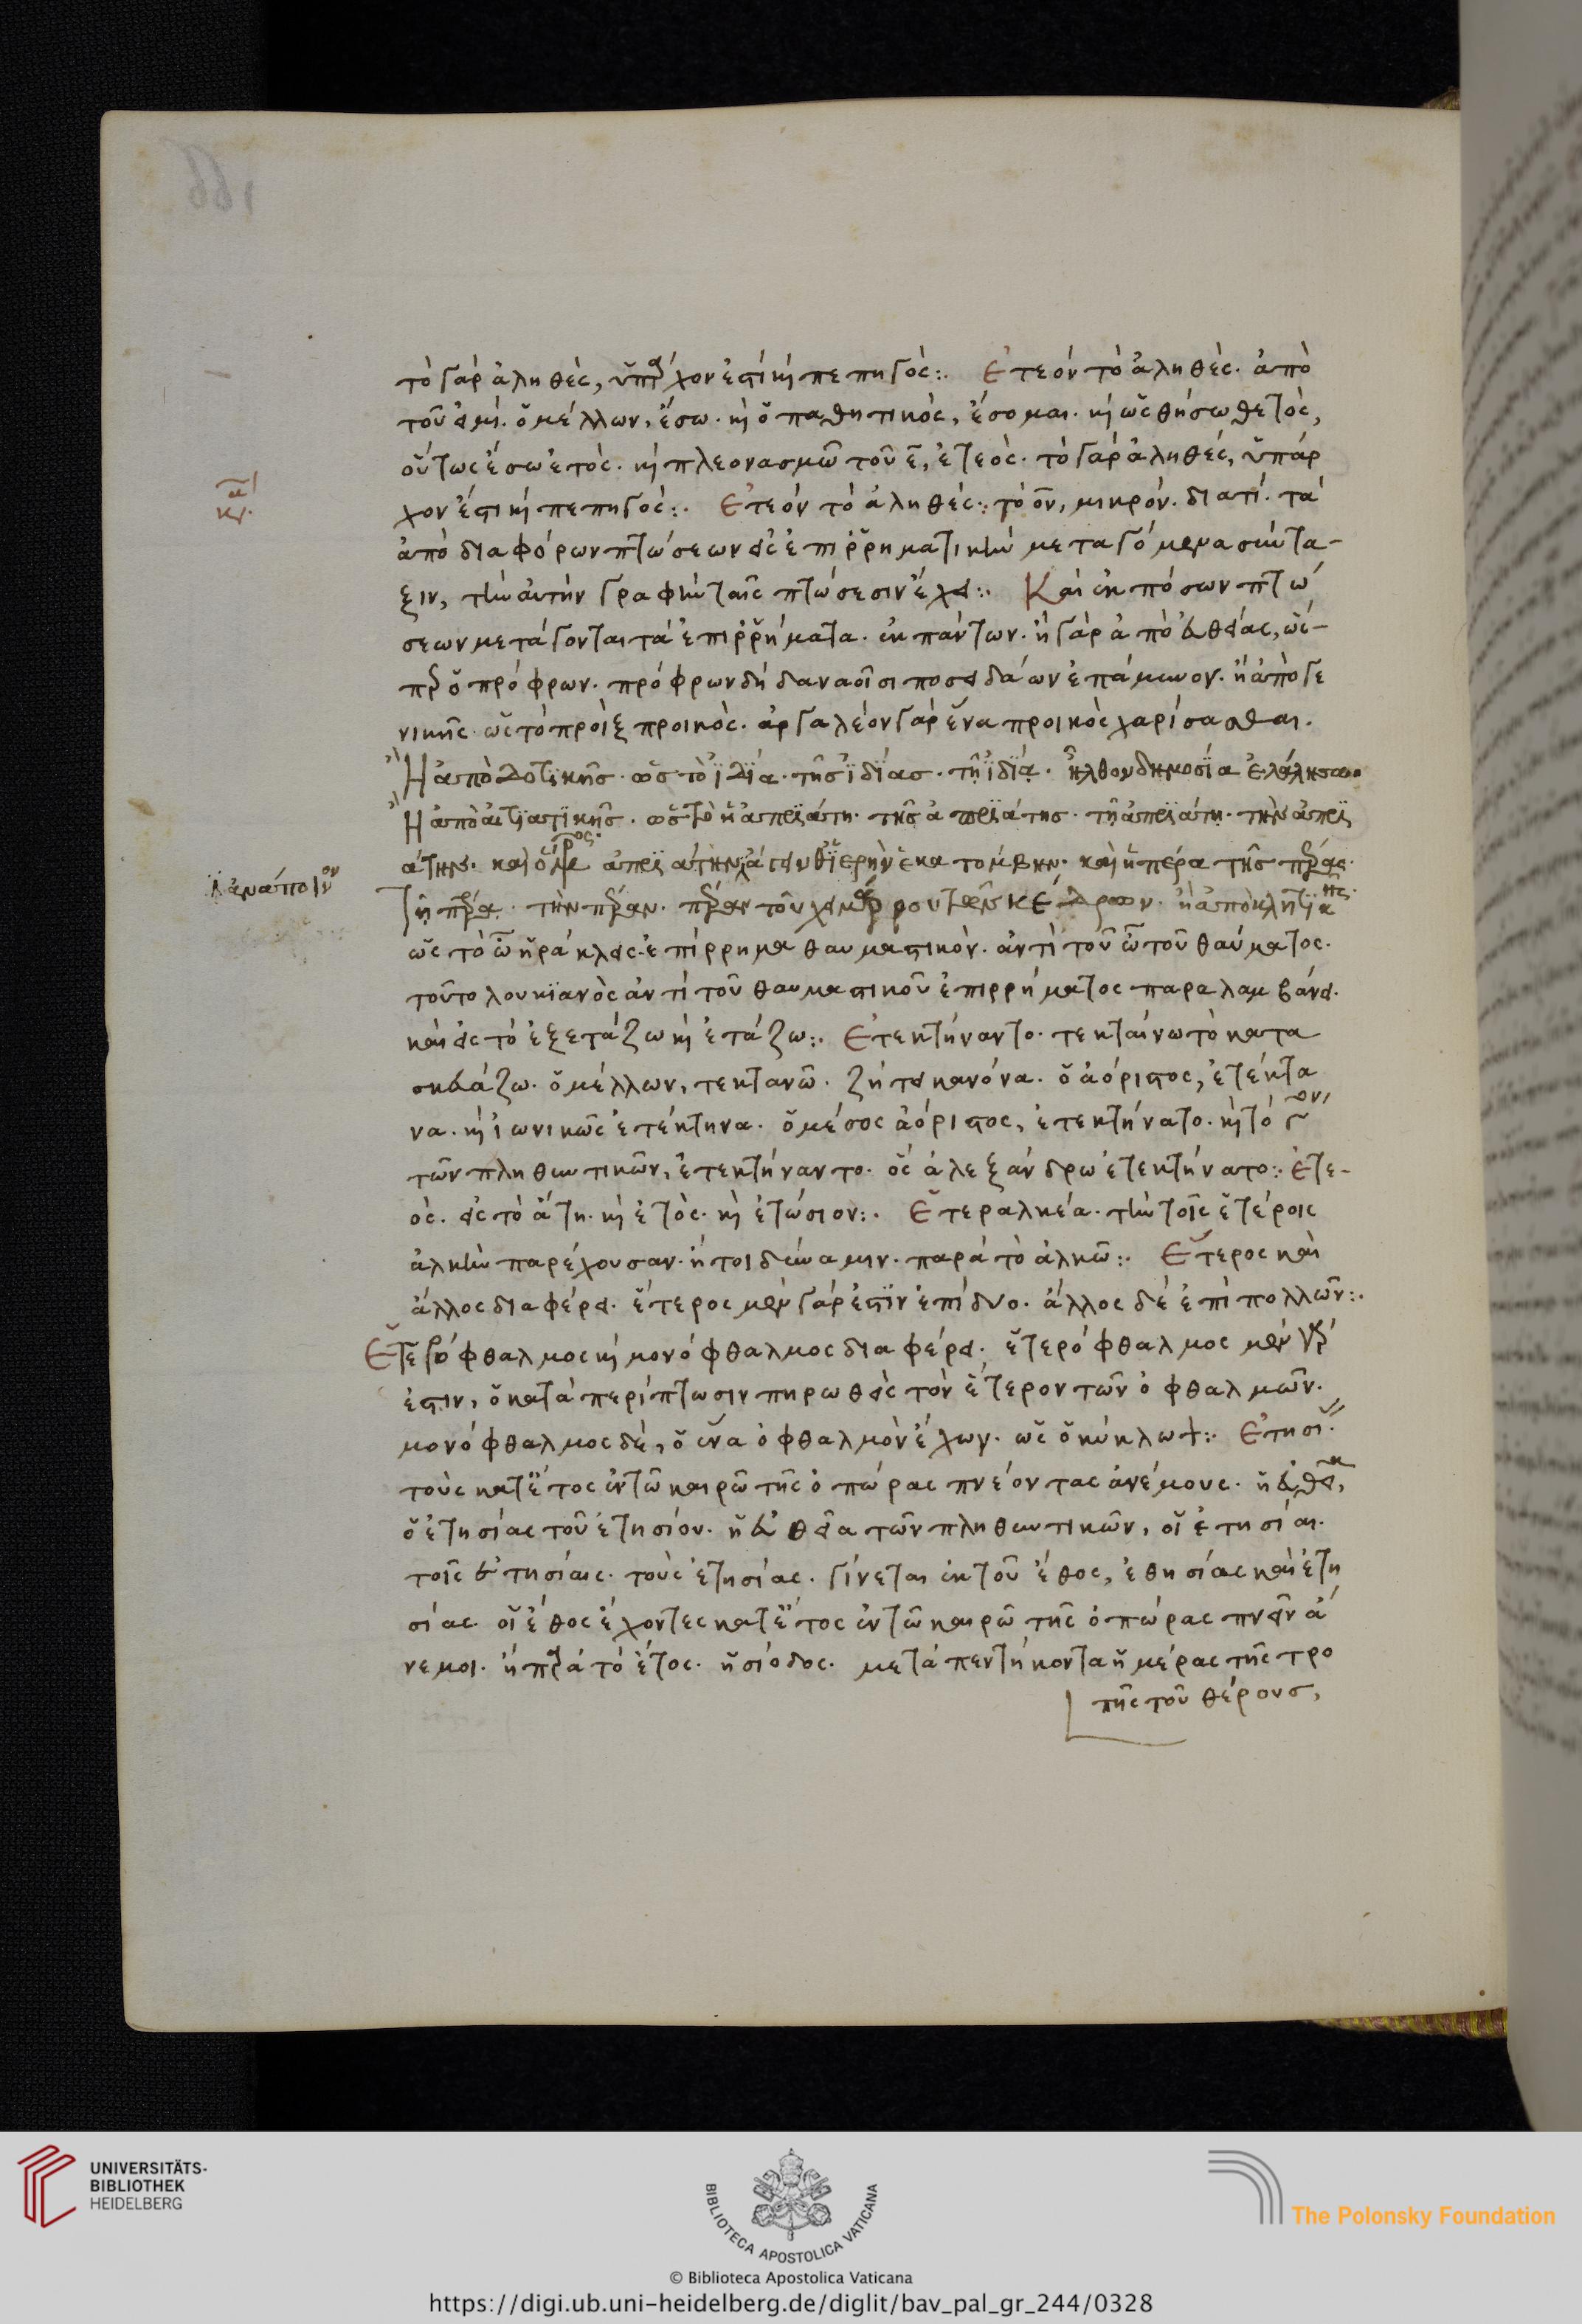 τὸ γὰρ ἀληθὲς, ὑπάρχον ἐστί κ(αὶ) πεπηγός:. Ἐτεόν τὸ ἀληθές. ἀπὸ
τοῦ εἰμί. ὁ μέλλων, ἔσω. κ(αὶ) ὁ παθητικὸς, ἔσομαι. κ(αὶ) ὡς θήσω θετὸς,
οὕτως ἔσω ἐτὸς. κ(αὶ) πλεονασμῶ τοῦ ε, ἐτεὸς. τὸ γὰρ ἀληθές, ὑπάρ
χον ἐστι κ(αὶ) πεπηγός:. Ἐτεόν τὸ ἀληθές:. τὸ ον, μικρόν. διατί. τὰ
ἀπὸ διαφόρων πτώσεων εἰς ἐπιρρηματικὴν μεταγόμενα σύντα-
ξιν, τὴν αὐτὴν γραφὴν ταῖς πτώσεσιν ἔχει:. Καὶ ἐκ πόσων πτώ
σεων μετάγονται τὰ ἐπιρρήματα. ἐκ πάντων. ἢ γὰρ ἀπὸ εὐθείας, ὥς-
περ ὁ πρόφρων. πρόφρων δὴ δαναοῖσι ποσειδάων ἐπάμυνον. ἢ ἀπὸ γε
νικῆς ὡς τὸ προὶξ προικὸς. ἀργαλέον γὰρ ἕνα προικὸς χαρίσασθαι.
Ἢ ἀπὸ δοτικῆς. ὡς τὸ ἰδία. τῆς ἰδίας. τῇ ἰδίᾳ. ἦλθον δημοσία ἐλάλησαν
Ἢ ἀπὸ αἰτιατικῆς. ὡς τὸ ἡ ἀπριάτη. τῆς ἀπριάτης. τῇ ἀπριάτῃ. τὴν ἀπρι
άτην. καὶ ὅμηρος. ἀπριάτην ἄγειν θ' ἱερὴν ἑκατόμβην. καὶ ἡ πέρα τῆς πέρας.
ἢ ἀνάποινον
τῇ πέρα. τὴν πέραν. πέραν τοῦ χειμάρρου τῶν κέδρων. ἢ ἀπὸ κλητικῆς.
ὡς τὸ ὦ ἡράκλεις. ἐπίρρημα θαυμαστικὸν. ἀντὶ τοῦ ὦ τοῦ θαύματος.
τοῦτο λουκϊανὸς ἀντὶ τοῦ θαυμαστικοῦ ἐπιρρήματος παραλαμβάνει.
καὶ εἰς τὸ ἐξετάζω κ(αὶ) ἐτάζω:. Ἐτεκτήναντο. τεκταίνω τὸ κατα
σκευάζω. ὁ μέλλων, τεκτανῶ. ζήτει κανόνα. ὁ ἀόριστος, ἐτέκτα
να. κ(αὶ) ἰωνικῶς ἐτέκτηνα. ὁ μέσος ἀόριστος, ἐτεκτήνατο. κ(αὶ) τὸ γ ον,
τῶν πληθυντικῶν, ἐτεκτήναντο. ὃς ἀλεξάνδρω ἐτεκτήνατο:. ἐτε-
ὸς. εἰς τὸ ἄτη. κ(αὶ) ἐτὸς. κ(αὶ) ἐτώσιον:. Ἑτεραλκέα. τὴν τοῖς ἑτέροις
ἀλκὴν παρέχουσαν. ἤτοι δύναμιν. παρὰ τὸ ἀλκῶ:. Ἕτερος καὶ
ἄλλος διαφέρει. ἕτερος μὲν γάρ ἐστϊν ἐπὶ δυο. ἄλλος δὲ ἐπὶ πολλῶν:.
Ἑτερόφθαλμος κ(αὶ) μονόφθαλμος διαφέρει. ἑτερόφθαλμος μὲν γάρ
ἐστιν, ὁ κατὰ περίπτωσιν πηρωθεὶς τὸν ἕτερον τῶν ὀφθαλμῶν.
μονόφθαλμος δὲ, ὁ ἕνα ὀφθαλμὸν ἔχων. ὡς ὁ κύκλωψ:. Ἐτησί
τοὺς κατ' ἔτος ἐν τῶ καιρῶ τῆς ὀπώρας πνέοντας ἀνέμους. ἡ εὐθεῖα,
ὁ ἐτησίας τοῦ ἐτησίου. ἡ εὐθεῖα τῶν πληθυντικῶν, οἱ ἐτησίαι.
τοῖς ἐτησίαις. τοὺς ἐτησίας. γίνεται ἐκ τοῦ ἔθος, ἐθησίας καὶ ἐτη
σίας. οἱ ἔθος ἔχοντες κατ' ἔτος ἐν τῶ καιρῶ τῆς ὀπώρας πνεῖν ἄ
νεμοι. ἢ παρὰ τὸ ἔτος. ἡσίοδος. μετὰ πεντήκοντα ἡμέρας τῆς τρο
πῆς τοῦ θέρους,
UNIVERSITÄTS-
BIBLIOTHEK
HEIDELBERG
BIBLIOTECA APOSTOLICA VATICANA
The Polonsky Foundation
© Biblioteca Apostolica Vaticana
https://digi.ub.uni-heidelberg.de/diglit/bav_pal_gr_244/0328